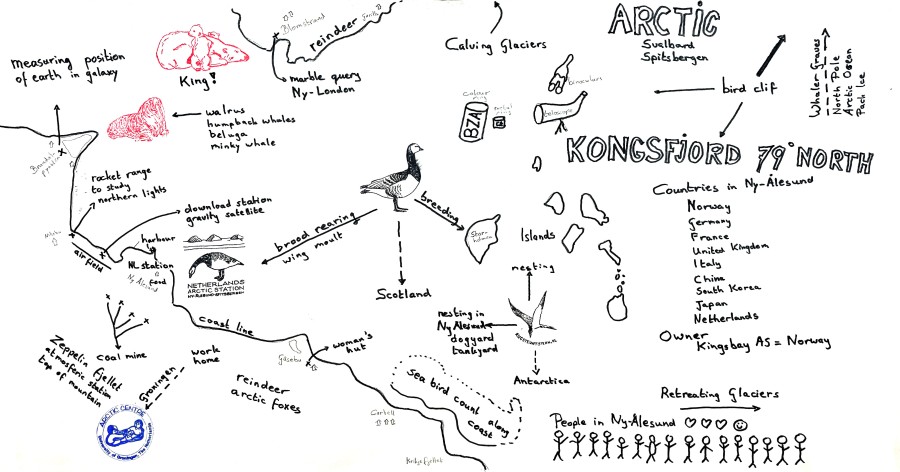 ARCTIC
Svalbard
Spitsbergen
Calving Glaciers
Blomstrand
reindeer
marble query
Ny-London
measuring position
of earth in galaxy
King!
walrus
humpback whales
beluga
minky whale
binoculars
telescope
BZA
bird clif
Whaler Graves
North Pole
Arctic Ocean
Pack Ice
KONGSFJORD 79° NORTH
rocket range
to study
northern lights
download station
gravity satellite
harbour
airfield
NL station
food
Ny Alesund
NETHERLANDS
ARCTIC STATION
NY-ÅLESUND-SPITSBERGEN
brood rearing
wing moult
breeding
Storholmen
Islands
Scotland
nesting
nesting in
Ny Alesund
dogyard
tankyard
Antarctica
Countries in Ny-Ålesund
Norway
Germany
France
United Kingdom
Italy
China
South Korea
Japan
Netherlands
Owner
Kingsbay AS = Norway
coast line
woman's
hut
Gåsebu
coal mine
work
home
Zeppelin fjellet
atmosferic station
top of mountain
Groningen
ARCTIC CENTRE
University of Groningen, The Netherlands
reindeer
arctic foxes
Sea bird count along
coast
Corbell
Retreating Glaciers
People in Ny-Alesund